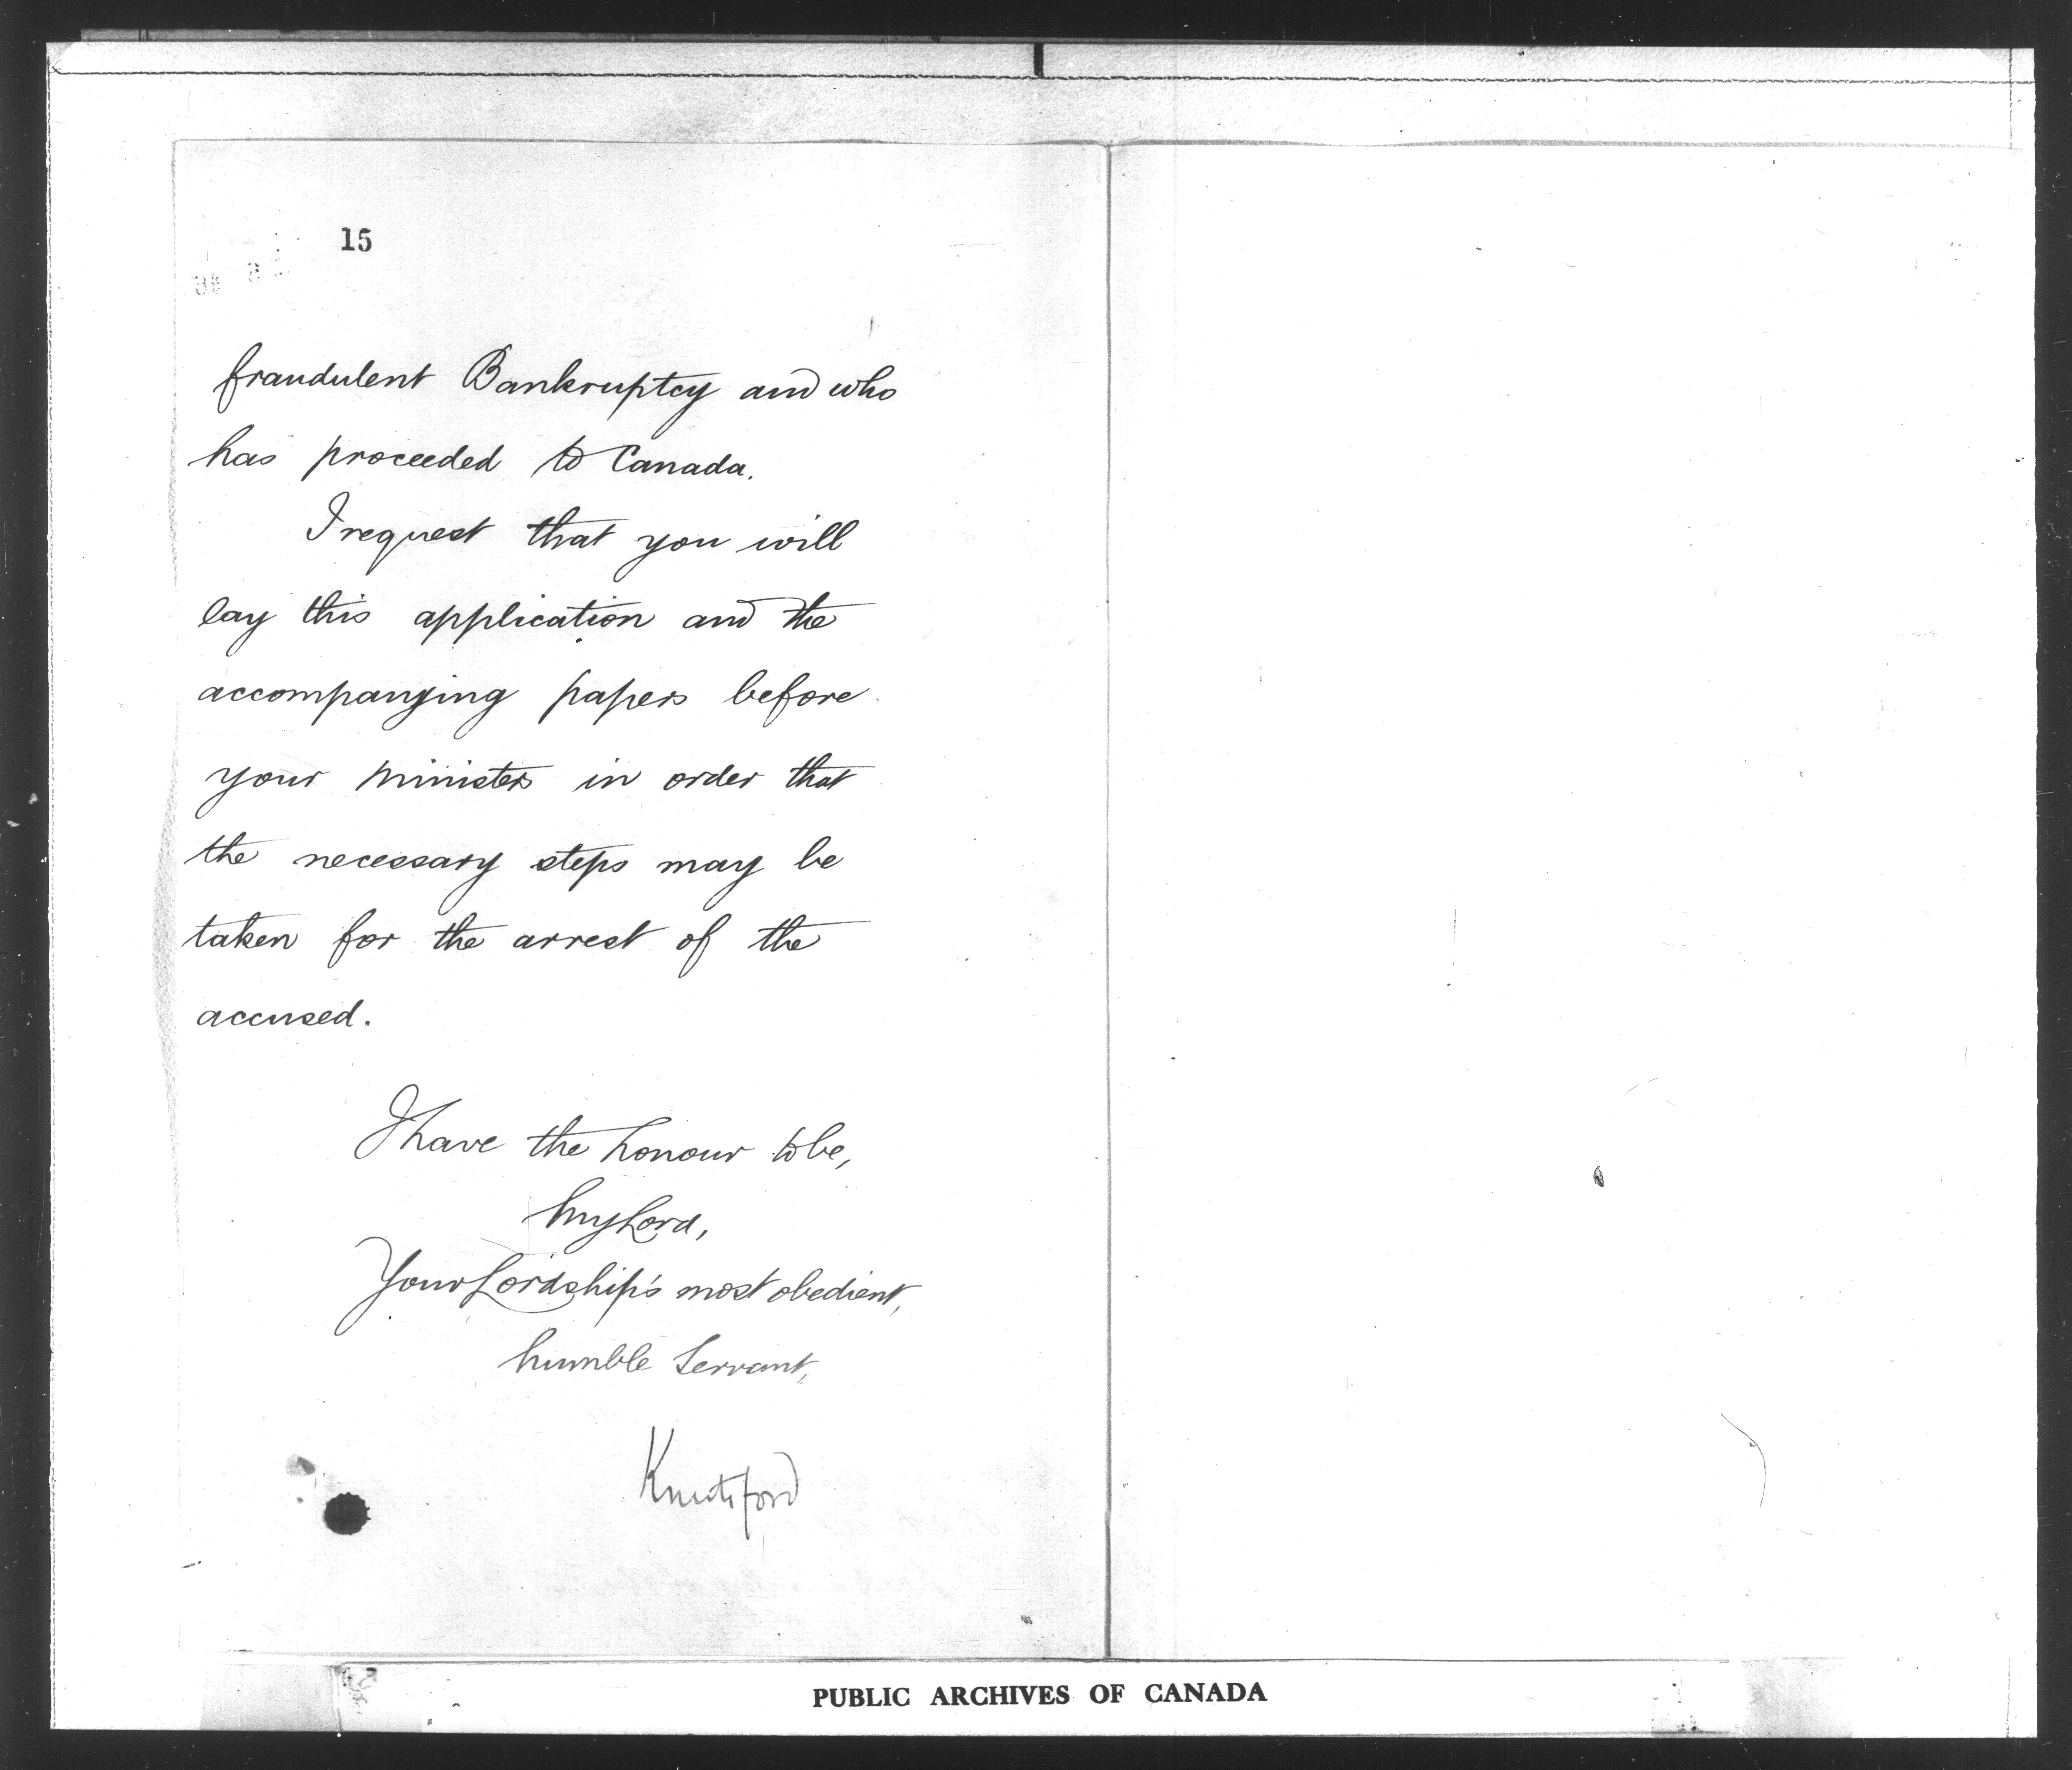 15
fraudulent Bankruptcy and who
has proceeded to Canada.
I request that you will
lay this application and the
accompanying papers before
your Ministers in order that
the necessary steps may be
taken for the arrest of the
accused.
I have the honour to be,
My Lord,
Your Lordship's most obedient,
humble Servant,
Knutsford
PUBLIC ARCHIVES OF CANADA